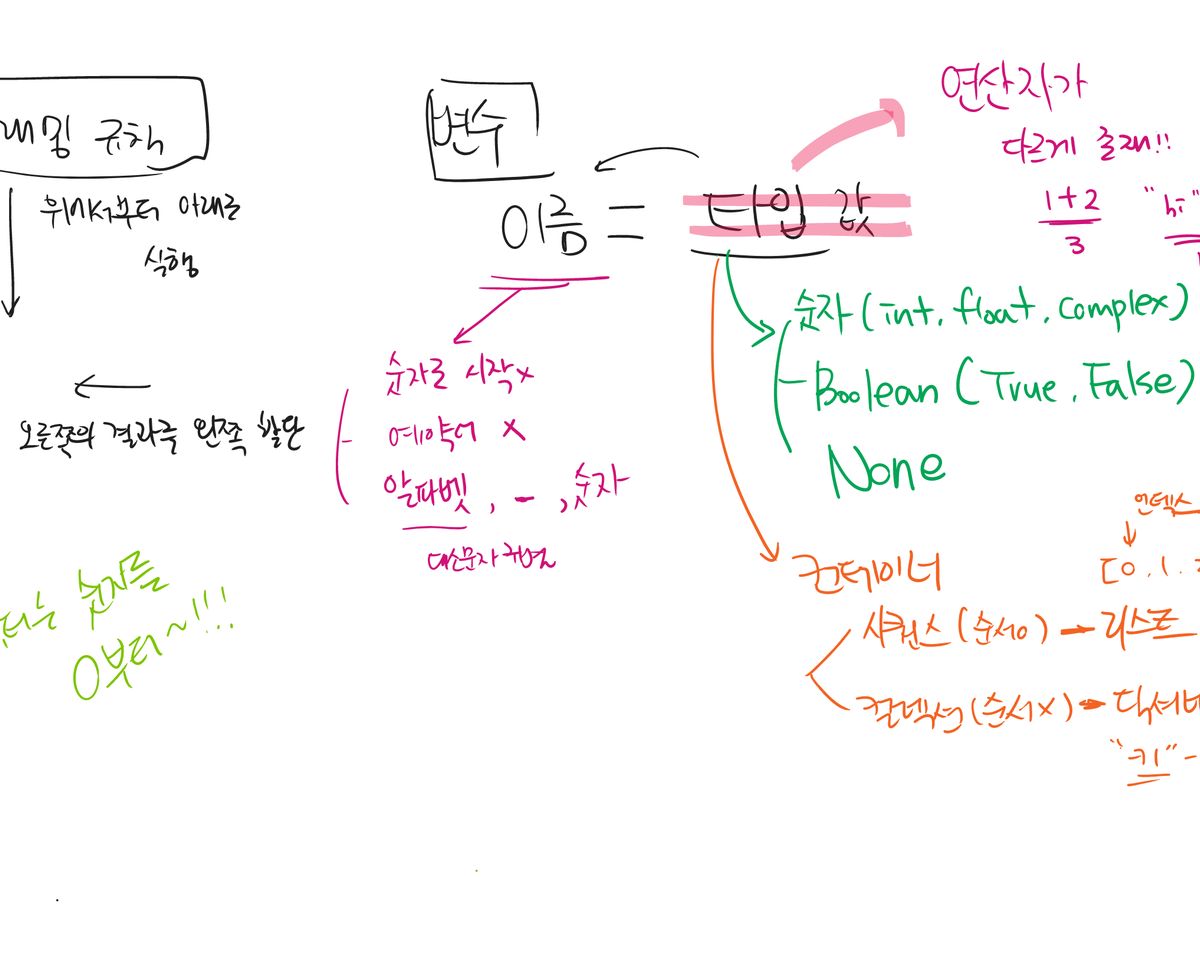 래밍 규칙
위에서부터 아래로
실행
←
오른쪽의 결과를 왼쪽 할당
터는 숫자를
0부터~!!!
변수
이름 = 타입 값
숫자로 시작 x
예약어 x
알파벳, _, 숫자
대소문자 구별
연산자가
다르게 존재!!
1+2
3
"hi"
숫자 (int, float, complex)
Boolean (True, False)
None
컨테이너
인덱스
[0, 1,
시퀀스 (순서o) - 리스트
컬렉션 (순서x) - 딕셔너
"키" -